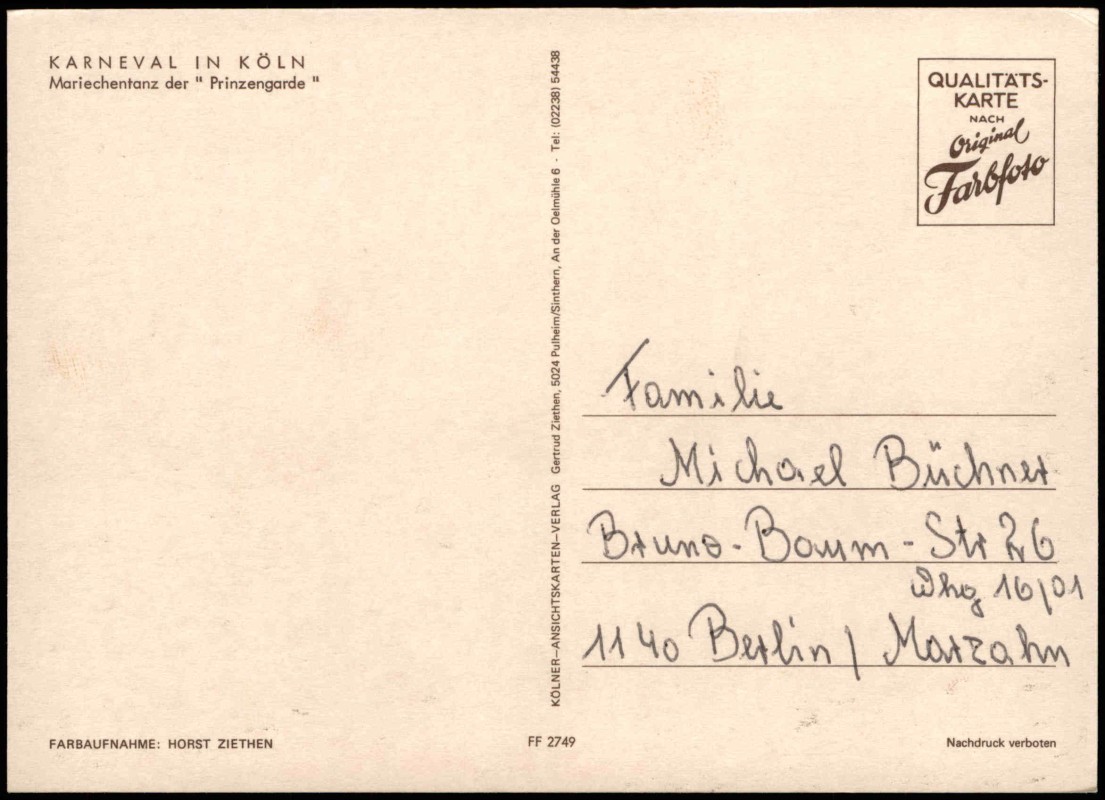 KARNEVAL IN KÖLN
Mariechentanz der " Prinzengarde "
KÖLNER-ANSICHTSKARTEN-VERLAG Gertrud Ziethen, 5024 Pulheim/Sinthern, An der Oelmühle 6 · Tel: (02238) 54438
QUALITÄTS-
KARTE
NACH
Original
Farbfoto
Familie
Michael Büchner
Bruno-Baum-Str 26
Whg 16/01
1140 Berlin / Marzahn
FARBAUFNAHME: HORST ZIETHEN
FF 2749
Nachdruck verboten